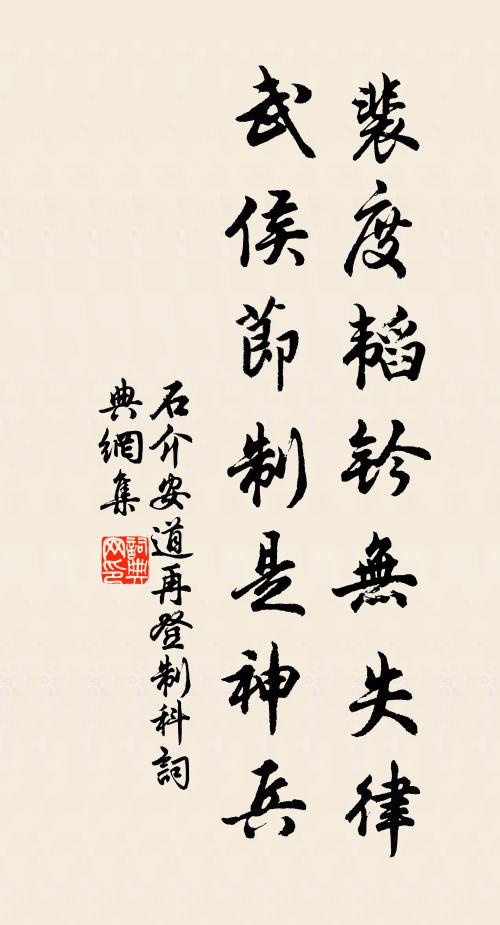 裴度韬鈐無失律
武侯節制是神兵
石介安道再登制科詞
典網集
詞典
网印